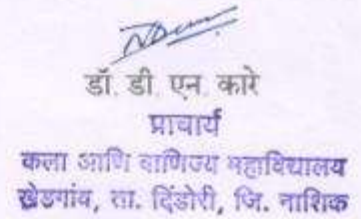 डॉ. डी. एन. कारे
प्राचार्य
कला आणि वाणिज्य महाविद्यालय
खेडगांव, ता. दिंडोरी, जि. नाशिक